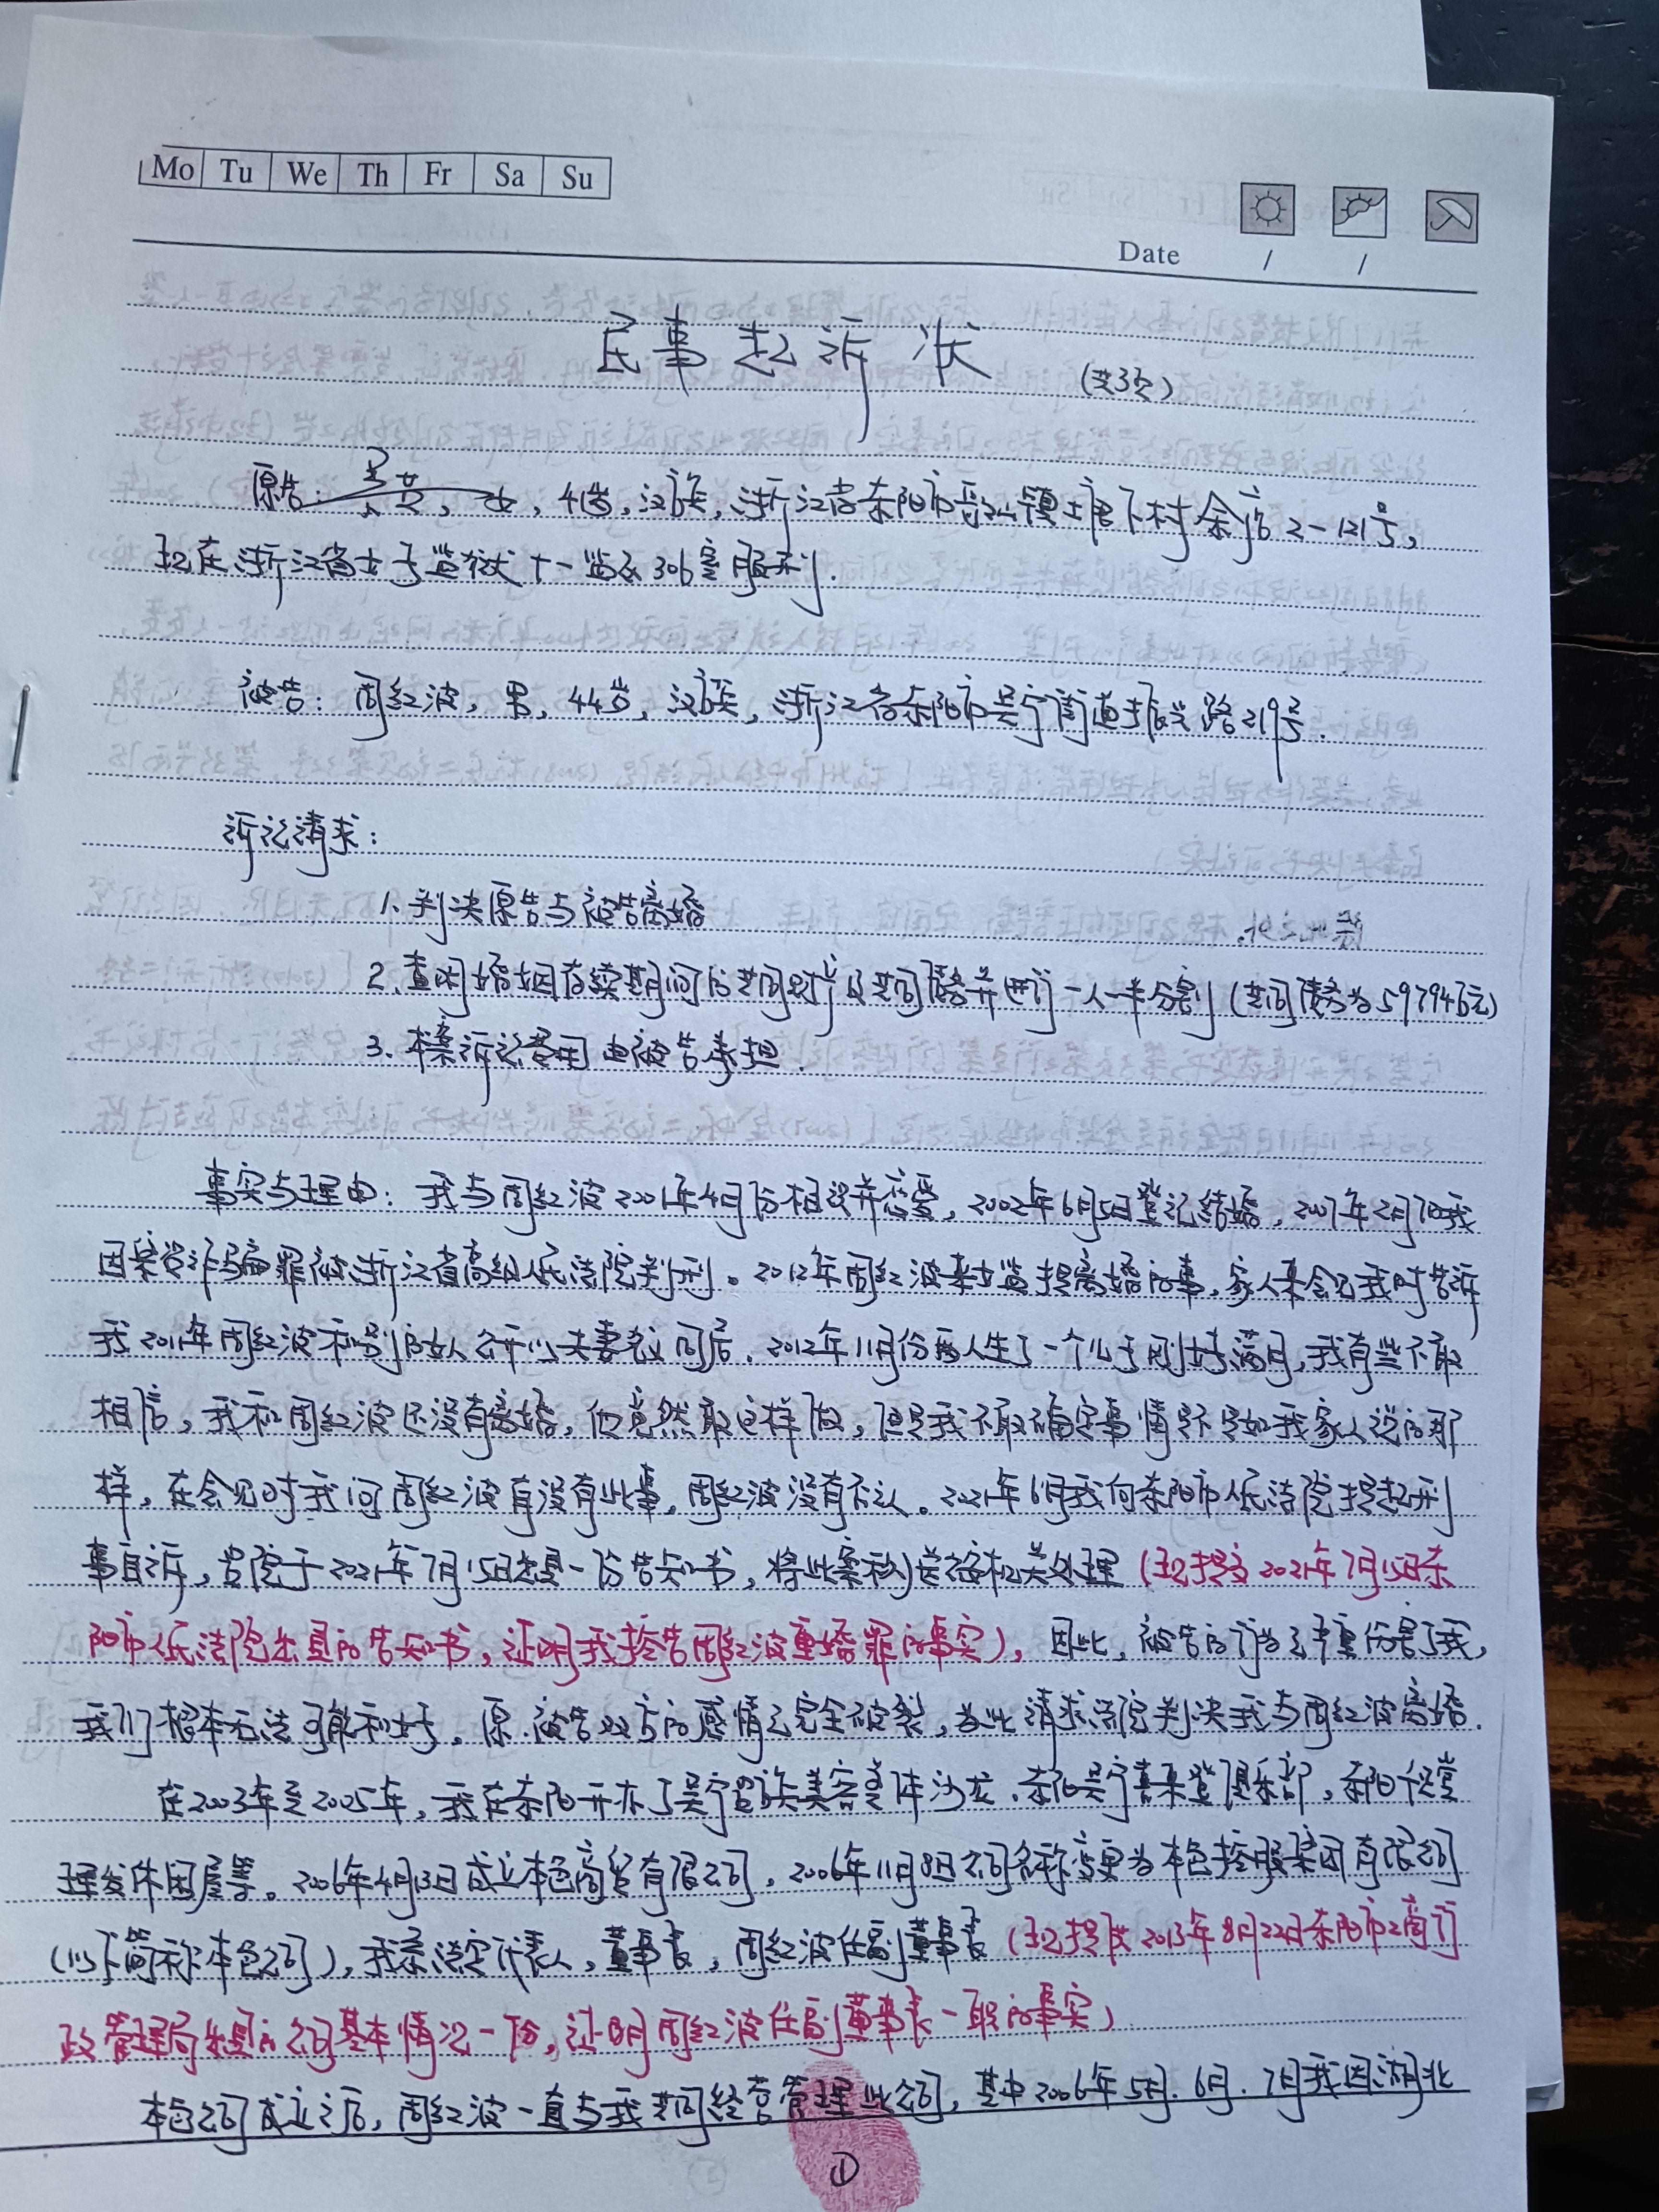 Mo Tu We Th Fr Sa Su
Date / /
民事起诉状
(共3页)
原告: 吴英, 女, 41岁, 汉族, 浙江省东阳市歌山镇土唐下村余店2-121号,
现在浙江省女子监狱十一监区306室服刑.
被告: 周红波, 男, 44岁, 汉族, 浙江省东阳市吴宁街道振兴路219号.
诉讼请求:
1. 判决原告与被告离婚
2. 查明婚姻存续期间的共同财产及共同债务并进行一人一半分割 (共同债务为59794万元)
3. 本案诉讼费用由被告承担.
事实与理由: 我与周红波2001年4月份相识并恋爱, 2002年6月5日登记结婚, 2007年2月7日我
因集资诈骗罪被浙江省高级人民法院判刑。2012年周红波来女监提离婚的事, 家人来会见我时告诉
我2011年周红波和别的女人公开以夫妻名义同居. 2012年11月份两人生了一个儿子刚好满月, 我有些不敢
相信, 我和周红波还没有离婚, 他竟然敢这样做, 但是我不敢确定事情是不是如我家人说的那
样, 在会见时我问周红波有没有此事, 周红波没有否认。2021年6月我向东阳市人民法院提起刑
事自诉, 贵院于2021年7月15日出具一份告知书, 将此案移送公安机关处理 (现提交2021年7月15日东
阳市人民法院出具的告知书, 证明我控告周红波重婚罪的事实), 因此, 被告的行为已严重伤害了我,
我们根本无法可能和好。原、被告双方的感情已完全破裂, 为此请求法院判决我与周红波离婚.
在2003年至2005年, 我在东阳开办了吴宁贵族美容美体沙龙. 东阳吴宁喜来登俱乐部, 东阳千足堂
理发休闲屋等。2006年4月13日成立本色商贸有限公司, 2006年11月8日公司名称变更为本色控股集团有限公司
(以下简称本色公司), 我系法定代表人, 董事长, 周红波任副董事长 (现提供2013年8月22日东阳市工商行
政管理局出具的公司基本情况一份, 证明周红波任副董事长一职的事实)
本色公司成立之后, 周红波一直与我共同经营管理此公司, 其中2006年5月. 6月. 7月我因湖北
①